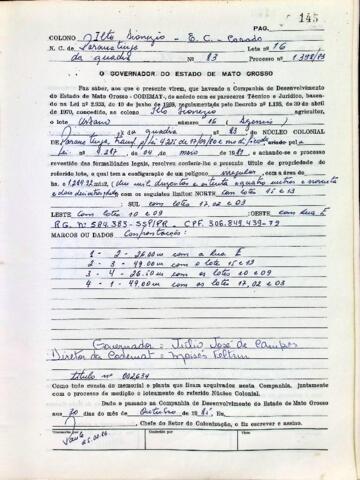 PAG. 145
COLONO Ilto Dionizio - B. C. - Casado
N. C. de Paranatinga Lote nº 16
da quadra Nº 83 Processo nº 1.398/85
O GOVERNADOR DO ESTADO DE MATO GROSSO
Faz saber, aos que o presente virem, que havendo a Companhia de Desenvolvimento
do Estado de Mato Grosso - CODEMAT-, de acordo com os pareceres Técnico e Jurídico, baseado
na Lei nº 2.933, de 10 de junho de 1969, regulamentada pelo Decreto Nº 1.195, de 30 de abril
de 1970, concedido, no colono Ilto Dionizio agricultor,
o lote urbano número 16
da quadra nº 83 do NÚCLEO COLONIAL
DE Paranatinga criado pela
Lei Nº 4.217, de 04 de maio de 1981, e achando-se o processo
revestido das formalidades legais, resolveu conferir-lhe o presente título de propriedade do
referido lote, o qual tem a configuração de um polígono irregular, com a área de
com os seguintes limites: NORTE com lotes 15 e 13
SUL com lotes 17, 02 e 03
LESTE com lotes 10 e 09 :OESTE com Rua E
RG. Nº 584.383-SSP/PR. CPF. 306.849.439-72
MARCOS OU DADOS Confrontações:
1 - 2 - 26.00m com a Rua E
2 - 3 - 49.00m com o lote 15 e 13
3 - 4 - 26.50m com os lotes 10 e 09
4 - 1 - 49.00m com os lotes 17, 02 e 03
Governador = Júlio José de Campos
Diretor da Codemat = Moisés Feltrin
Título nº 002634
Como tudo consta do memorial e planta que ficam arquivados nesta Companhia, juntamente
com o processo de medição e loteamento do referido Núcleo Colonial.
Dado e passado na Companhia de Desenvolvimento do Estado de Mato Grosso
aos 30 dias do mês de Outubro de 1985. Eu,
, Chefe do Setor de Colonização, o fiz escrever e assino.